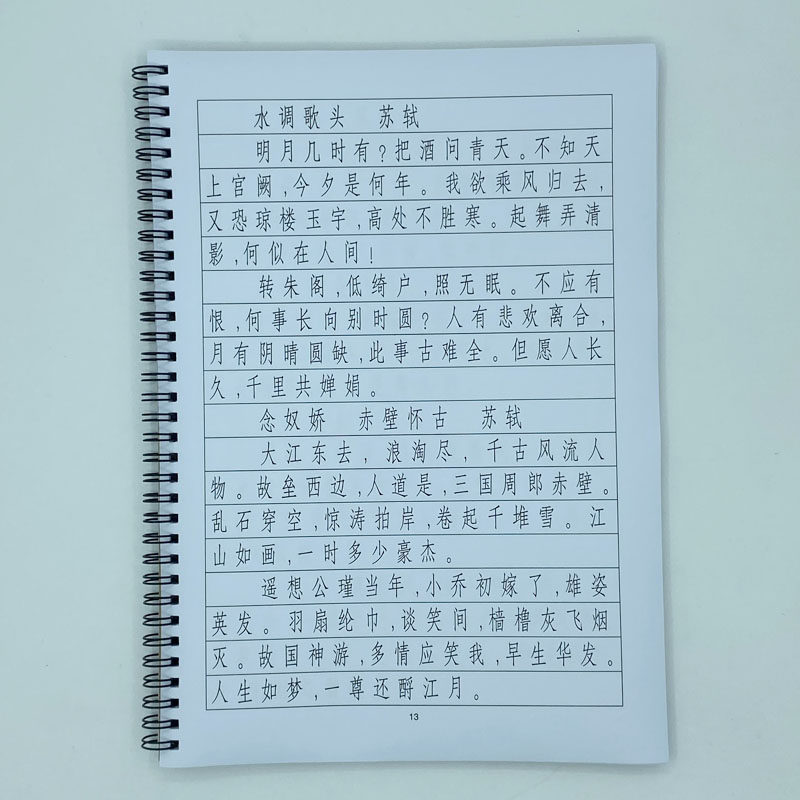 水调歌头 苏轼
明月几时有?把酒问青天。不知天
上宫阙,今夕是何年。我欲乘风归去,
又恐琼楼玉宇,高处不胜寒。起舞弄清
影,何似在人间!
转朱阁,低绮户,照无眠。不应有
恨,何事长向别时圆?人有悲欢离合,
月有阴晴圆缺,此事古难全。但愿人长
久,千里共婵娟。
念奴娇 赤壁怀古 苏轼
大江东去,浪淘尽,千古风流人
物。故垒西边,人道是,三国周郎赤壁。
乱石穿空,惊涛拍岸,卷起千堆雪。江
山如画,一时多少豪杰。
遥想公瑾当年,小乔初嫁了,雄姿
英发。羽扇纶巾,谈笑间,樯橹灰飞烟
灭。故国神游,多情应笑我,早生华发。
人生如梦,一尊还酹江月。
13